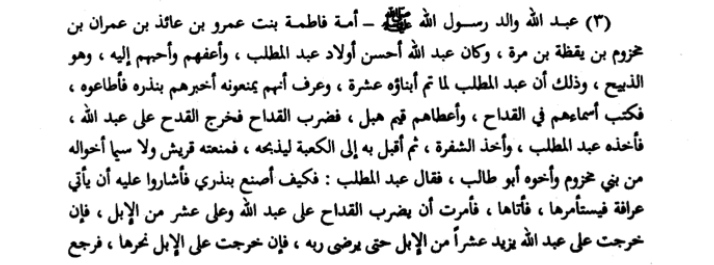 (٣) عبد الله والد رسول الله ﷺ – أمة فاطمة بنت عمرو بن عائذ بن عمران بن
مخزوم بن يقظة بن مرة ، وكان عبد الله أحسن أولاد عبد المطلب ، وأعفهم وأحبهم إليه ، وهو
الذبيح ، وذلك أن عبد المطلب لما تم أبناؤه عشرة ، وعرف أنهم يمنعونه أخبرهم بنذره فأطاعوه ،
فكتب أسماءهم في القداح ، وأعطاهم قيم هبل ، فضرب القداح فخرج القدح على عبد الله ،
فأخذه عبد المطلب ، وأخذ الشفرة ، ثم أقبل به إلى الكعبة ليذبحه ، فمنعته قريش ولا سيما أخواله
من بني مخزوم وأخوه أبو طالب ، فقال عبد المطلب : فكيف أصنع بنذري فأشاروا عليه أن يأتي
عرافة فيستأمرها ، فأتاها ، فأمرت أن يضرب القداح على عبد الله وعلى عشر من الإبل ، فإن
خرجت على عبد الله يزيد عشراً من الإبل حتى يرضى ربه ، فإن خرجت على الإبل نحرها ، فرجع